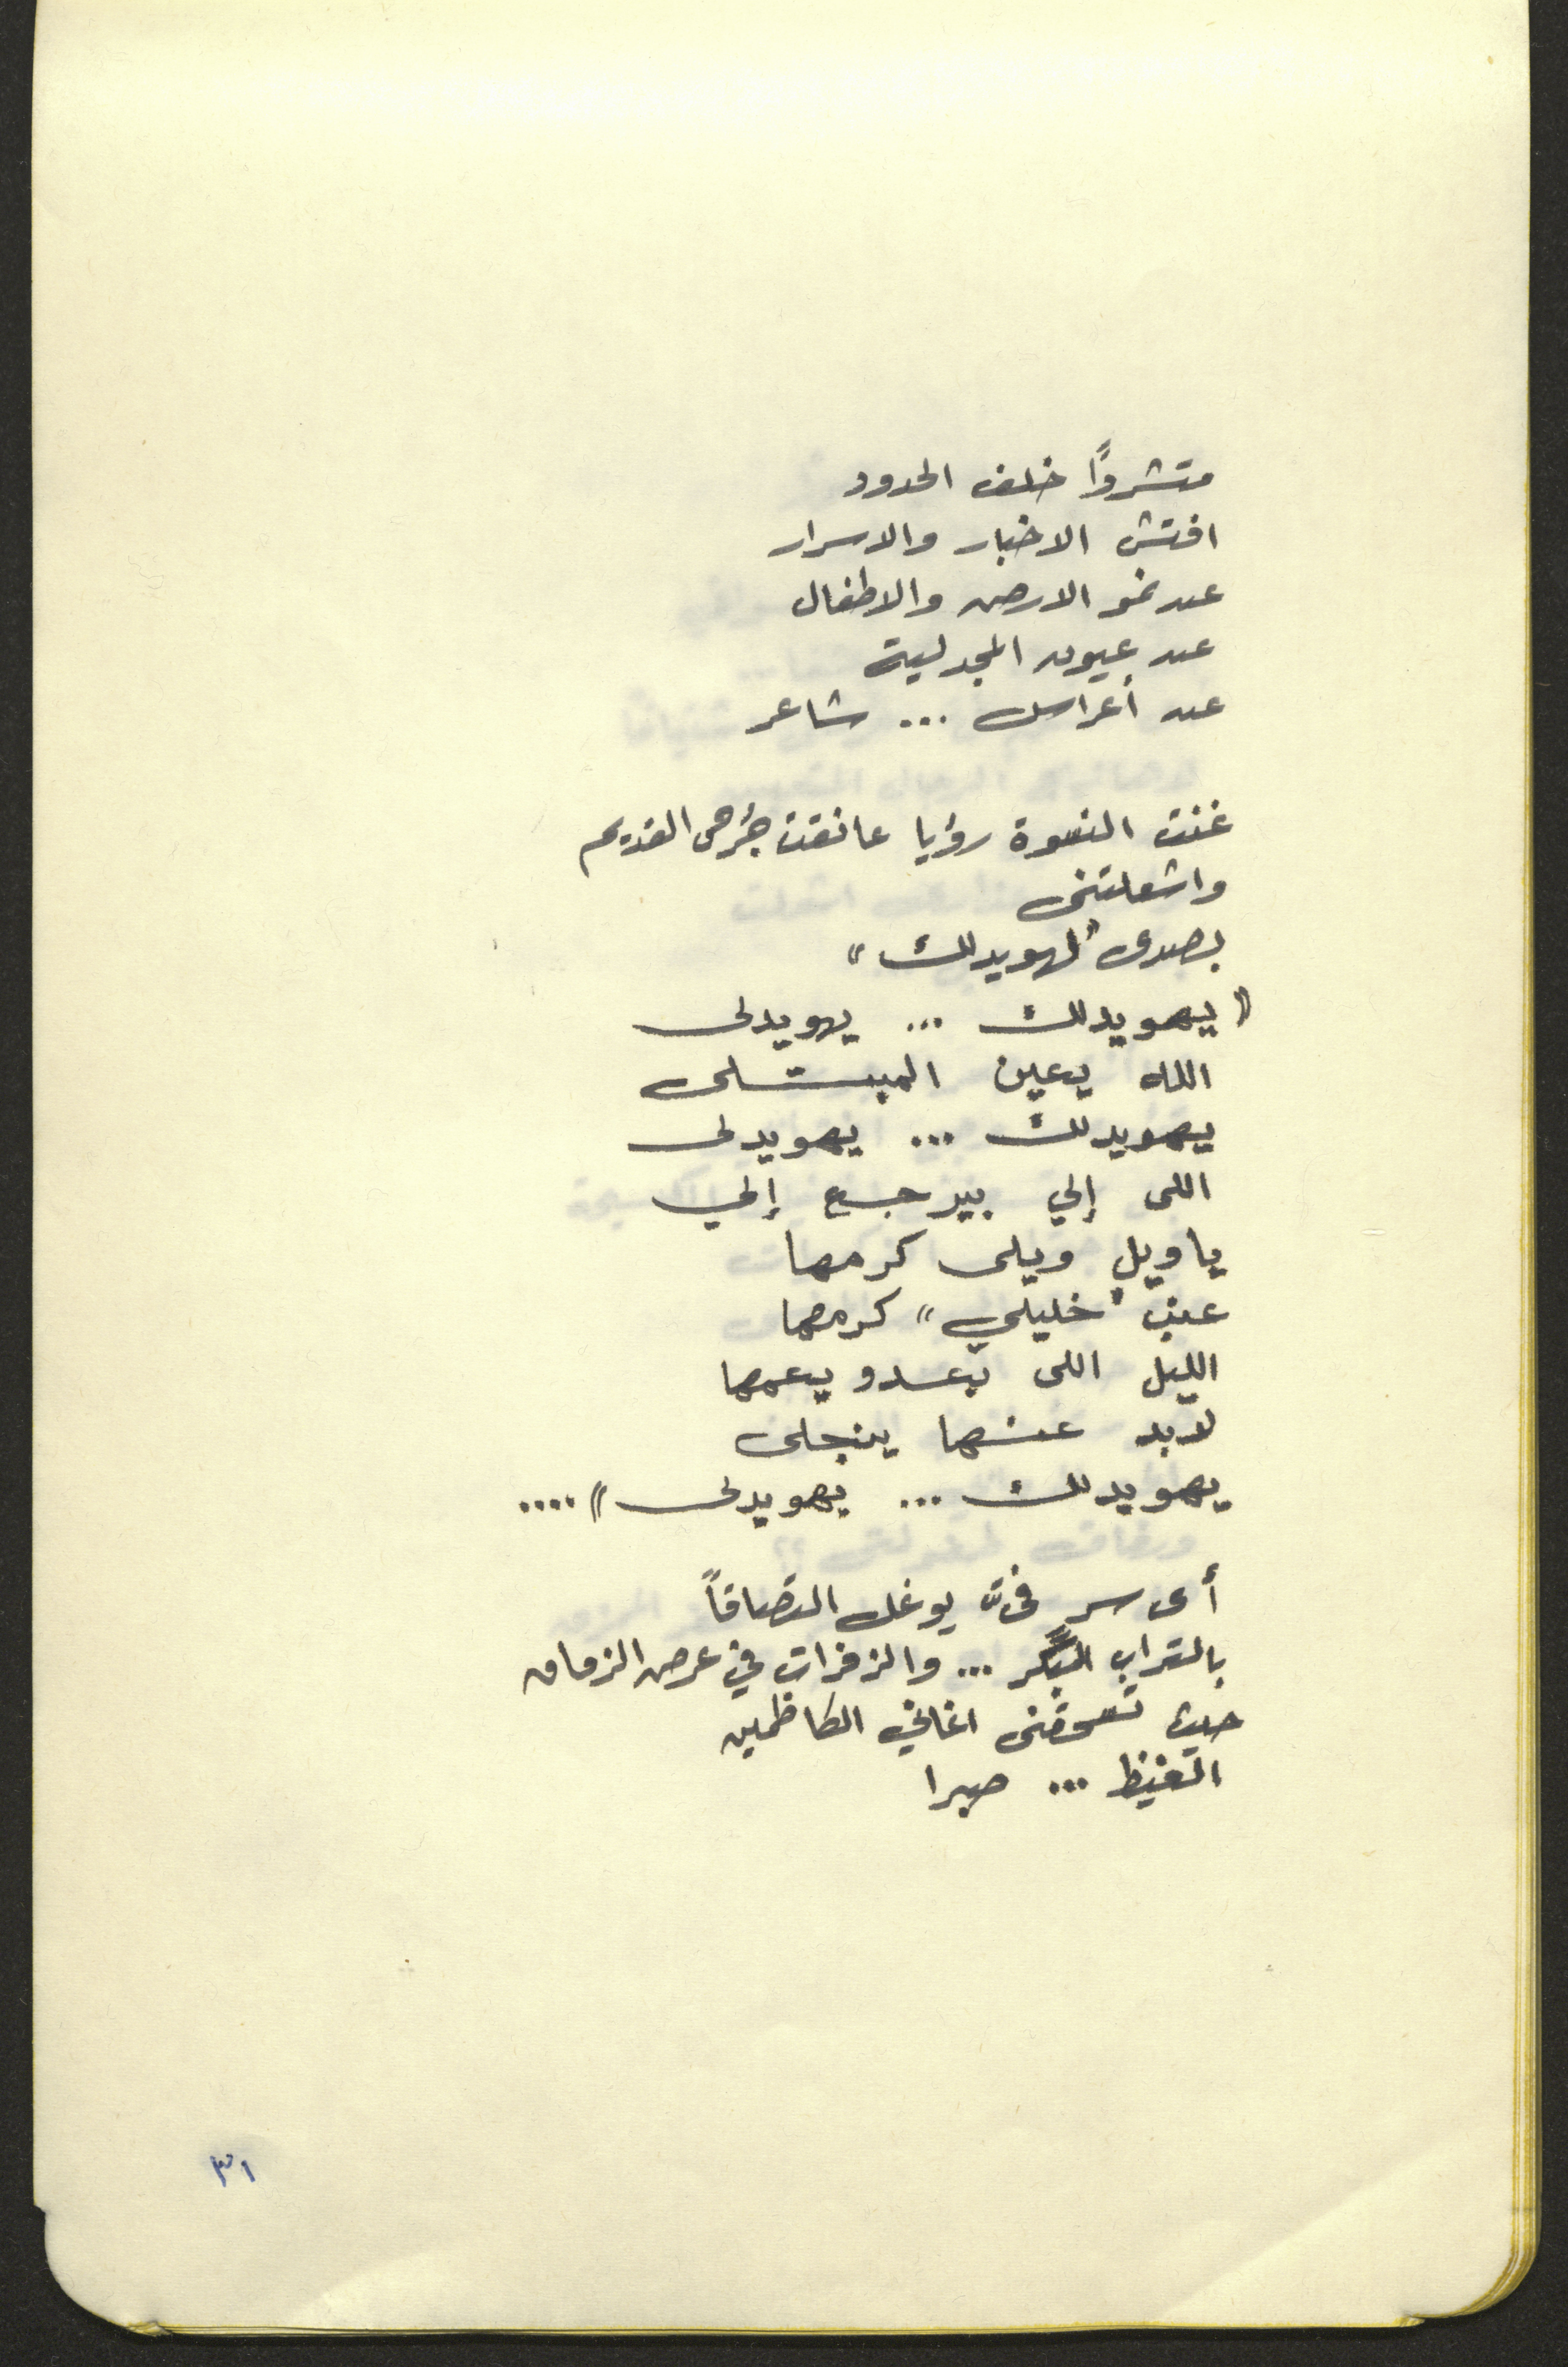 متشردًا خلف الحدود
افتش الاخبار والاسرار
عن نمو الارض والاطفال
عن عيون المجدلية
عن أعراس ... شاعر
غنت النسوة رؤيا عانقت جُرحى القديم
واشعلتنى
بصدى "لهويدلك"
"يهويدلك ... يهويدلى
الله يعين المبتلى
يهويدلك ... يهويدلى
اللى إلي بيرجع إلي
ياويل ويلى كرمها
عنب "خليلي" كرمها
الليل اللى بعدو يعمها
لابد عنها ينجلى
يهويدلك ... يهويدلى" ....
أى سر فىّ يوغل التصاقاً
بالتراب البكر ... والزفرات في عرض الزمان
حيث تسحقنى اغاني الكاظمين
الغيظ ... صبرا
٣١